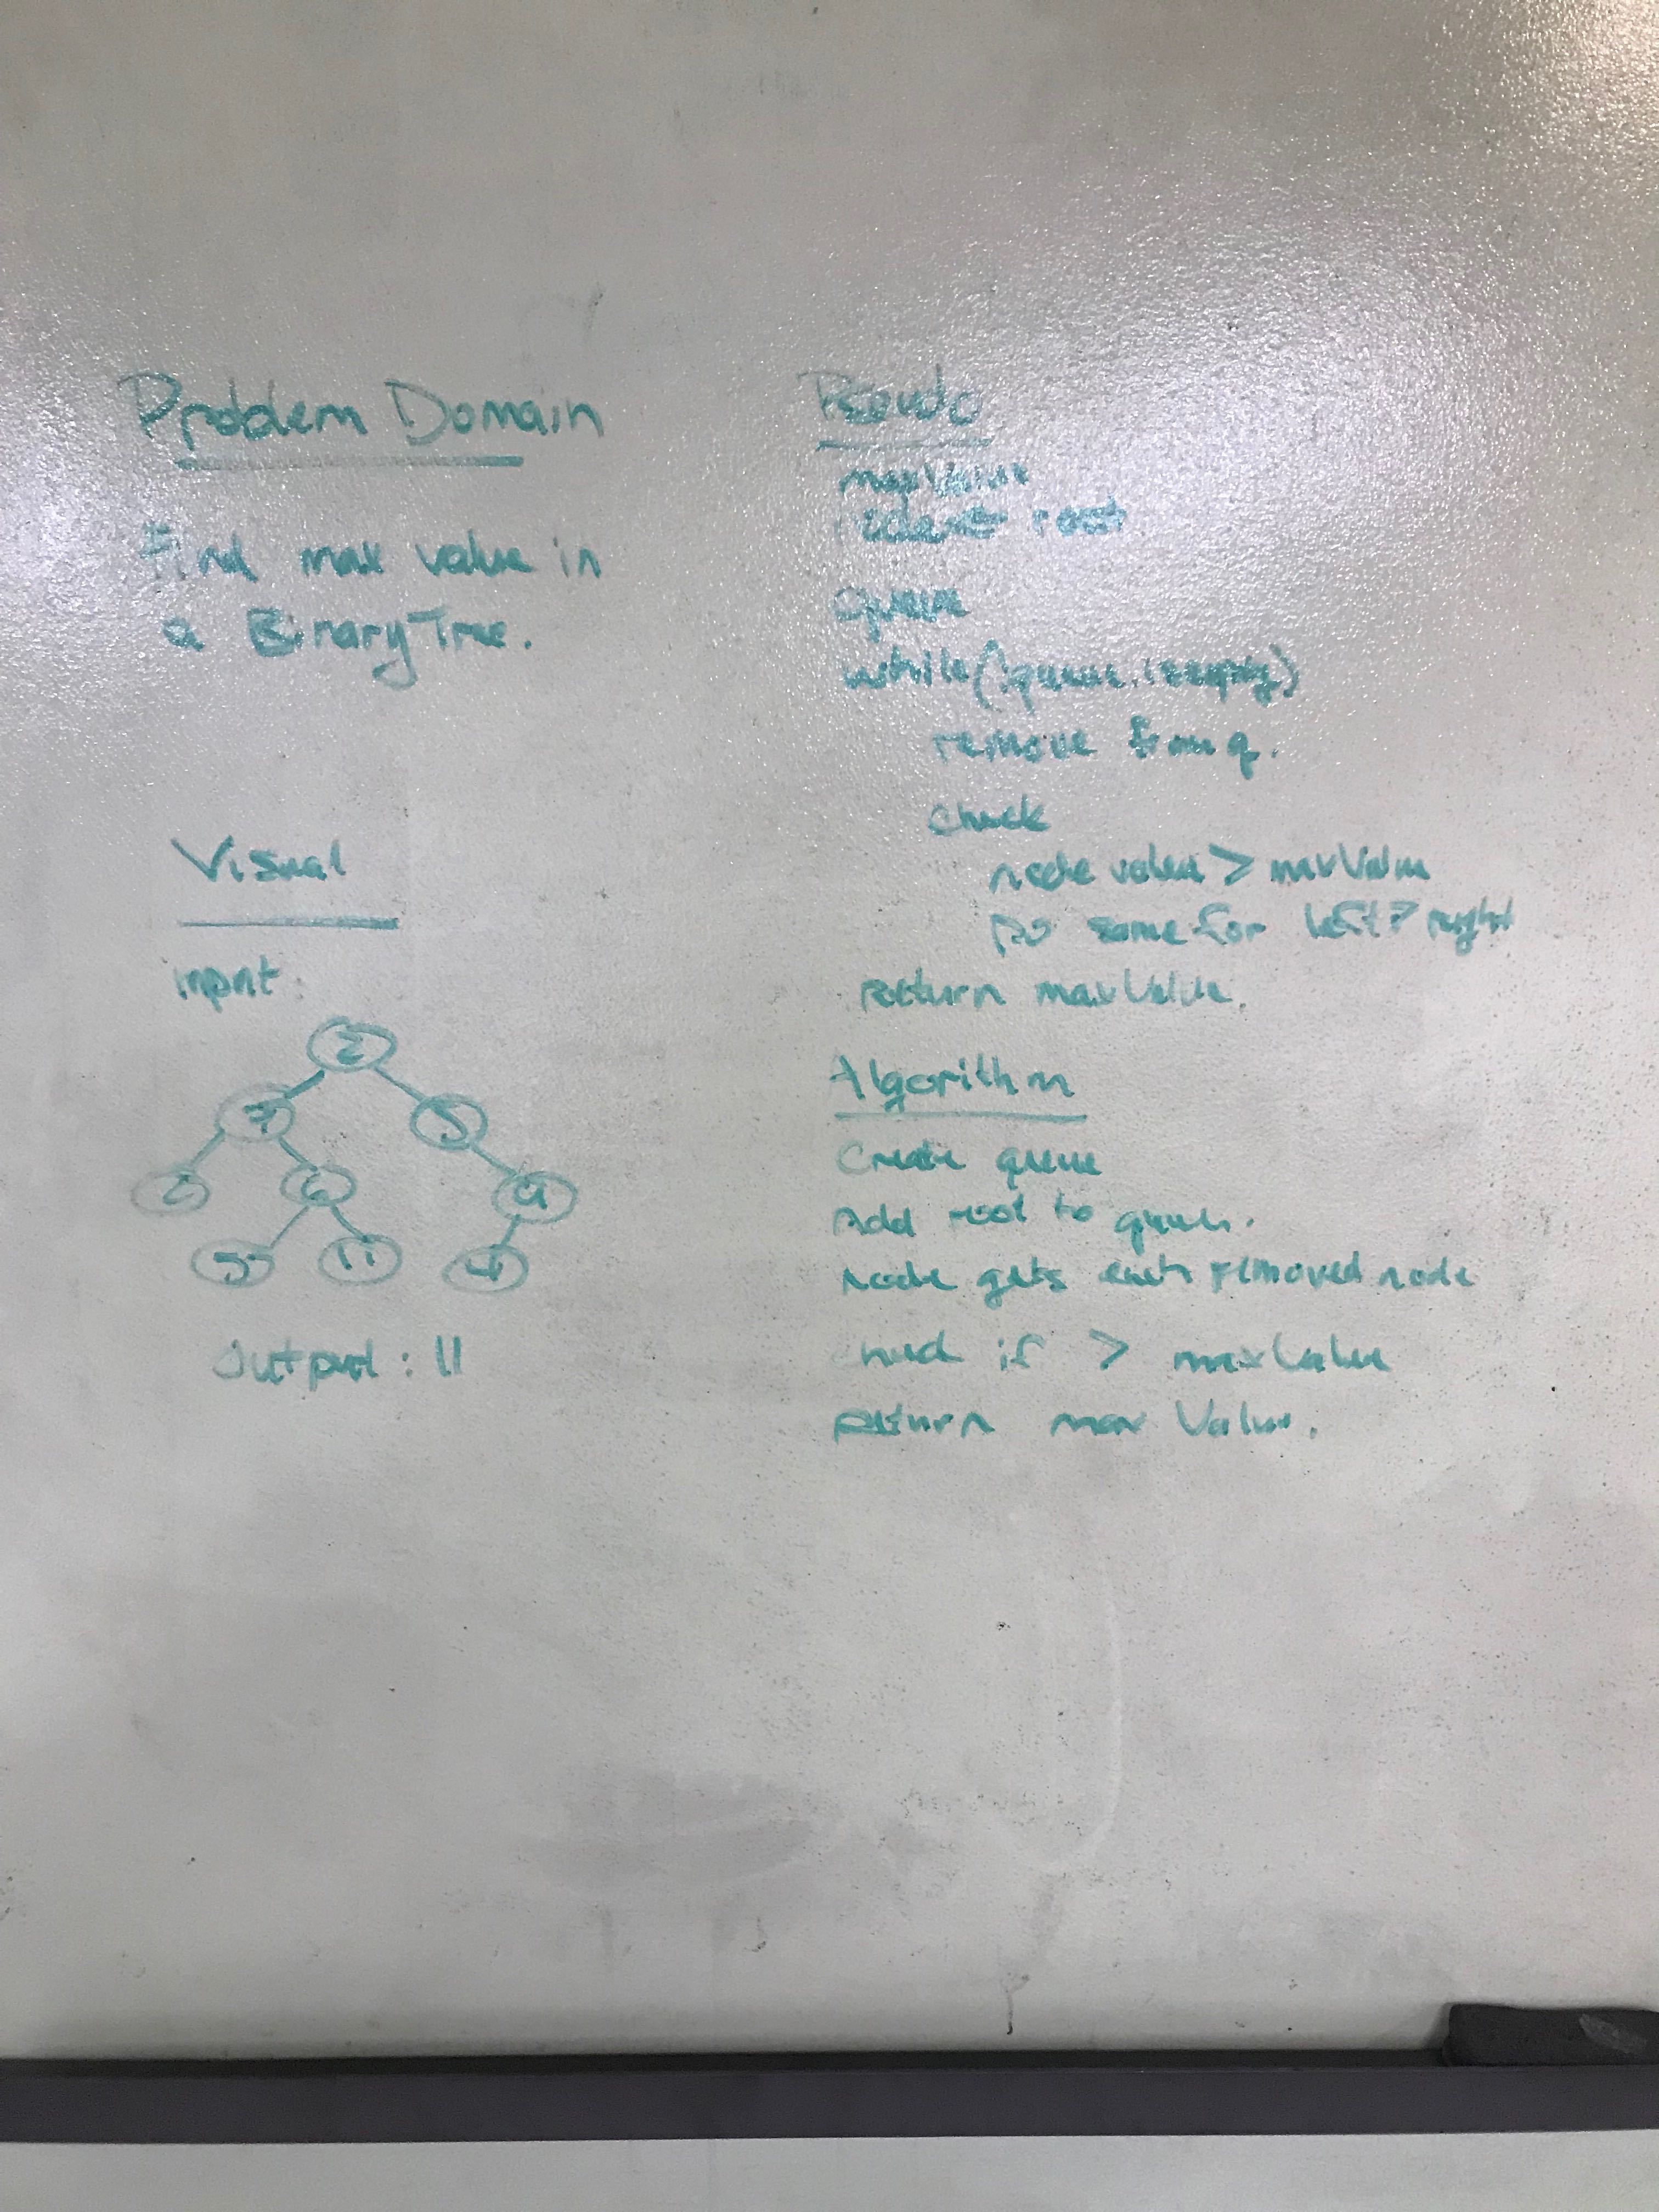 Problem Domain
Find max value in
a BinaryTree.
Visual
input:
2
7 5
2 6 9
5 11 4
Output: 11
Pseudo
maxValue
root
queue
while(!queue.isEmpty)
remove from q.
check
node value > maxValue
Do same for left & right
return maxValue.
Algorithm
Create queue
Add root to queue.
Node gets each removed node
check if > maxValue
return max Value.